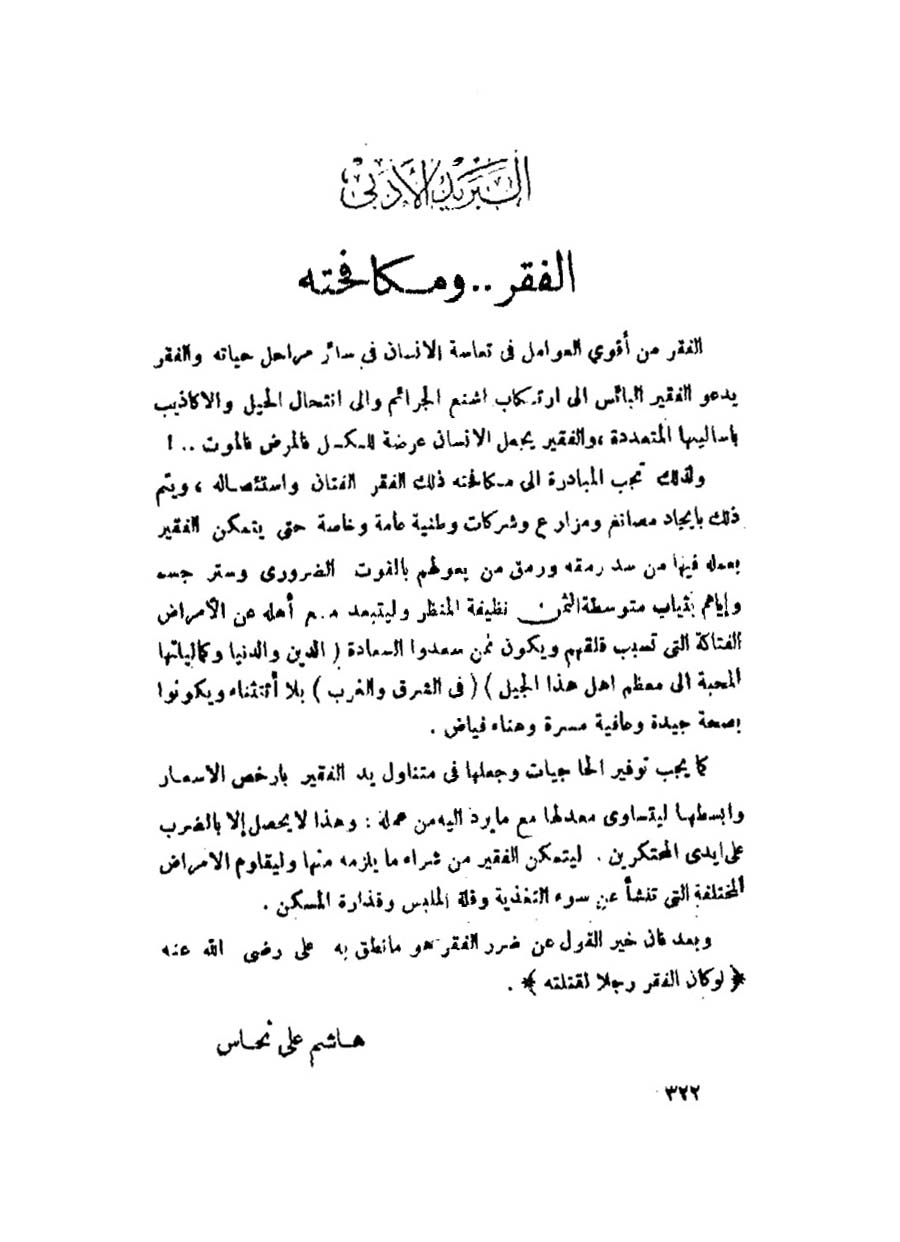 البريد الأدبي
الفقر .. ومكافحته
الفقر من أقوي العوامل فى تعاسة الانسان فى سائر مراحل حياته والفقر
يدعو الفقير البائس الى ارتكاب اشنع الجرائم والى انتحال الحيل والاكاذيب
باساليبها المتعددة ، والفقير يجعل الانسان عرضة للكسل فالمرض فالموت .. !
ولذلك تجب المبادرة الى مكافحته ذلك الفقر الفتان واستئصاله ، ويتم
ذلك بايجاد مصانع ومزارع وشركات وطنية عامة وخاصة حتى يتمكن الفقير
بعمله فيها من سد رمقه ورمق من يعولهم بالقوت الضرورى وستر جسمه
وإياهم بثياب متوسطة الثمن نظيفة المنظر وليتبعد مع أهله عن الأمراض
الفتاكة التى تسبب قلقهم ويكون ممن سعدوا السعادة ( الدين والدنيا وكمالياتها
المحببة الى معظم اهل هذا الجيل ) ( فى الشرق والغرب ) بلا أثنثناء ويكونوا
بصحة جيدة وعافية مسرة وهناء فياض .
كما يجب توفير الحاجيات وجعلها فى متناول يد الفقير بارخص الاسعار
وابسطها ليتساوى معدلها مع مايرد اليه من عمله : وهذا لايحصل إلا بالضرب
على ايدى المحتكرين . ليتمكن الفقير من شراء ما يلزمه منها وليقاوم الامراض
المختلفة التى تنشأ عن سوء التغذية وقلة الملبس وقذارة المسكن .
وبعد فان خير القول عن ضرر الفقر هو مانطق به على رضى الله عنه
﴿ لو كان الفقر رجلا لقتلته ﴾ .
هاشم على نحاس
٣٢٢